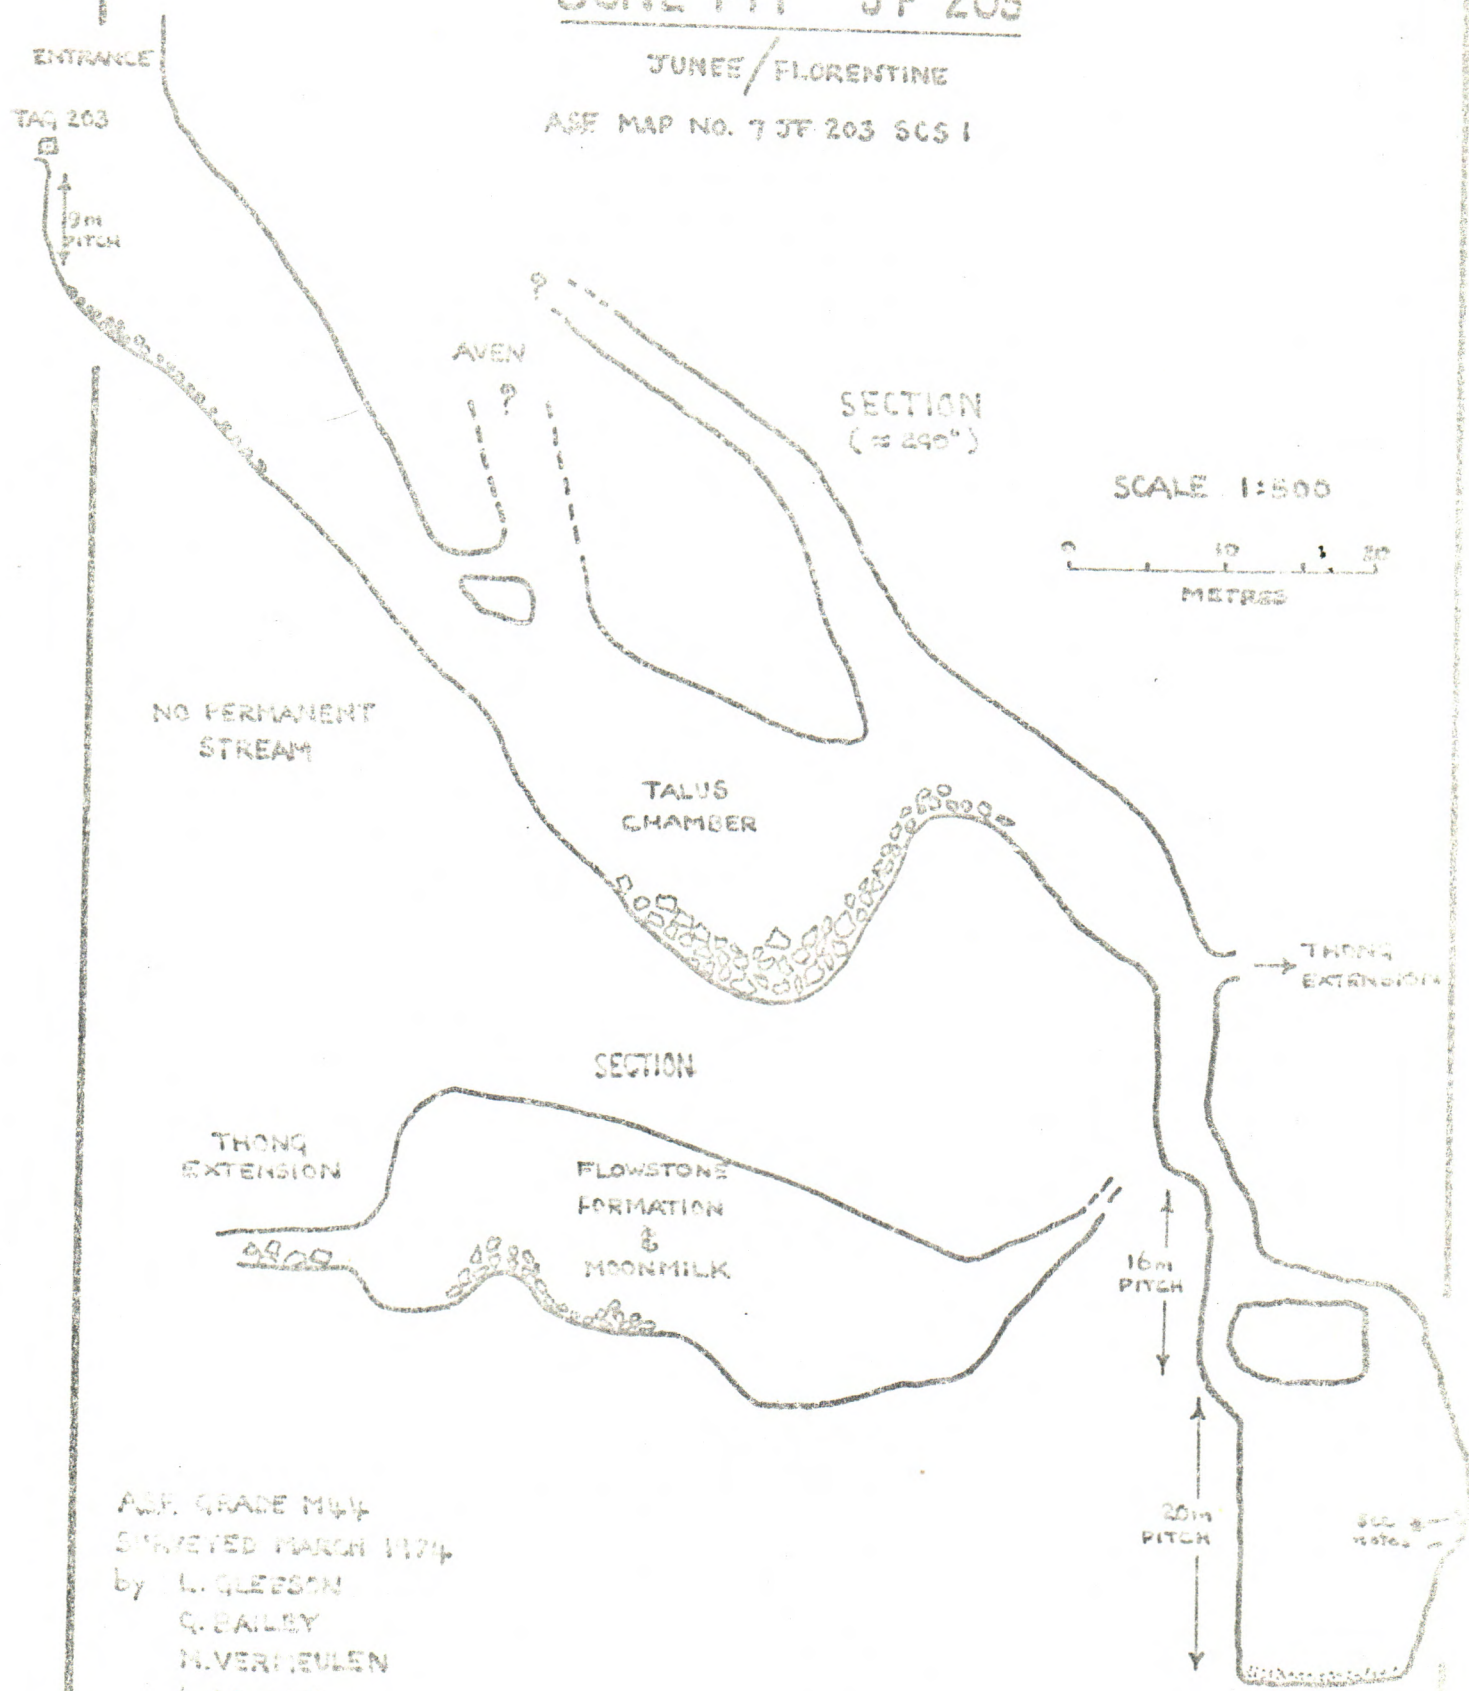 JF 203
JUNEE/FLORENTINE
ASF MAP NO. 7 JF 203 SCS 1
ENTRANCE
TAG 203
9m
PITCH
?
AVEN
?
SECTION
(≈ 290°)
SCALE 1:500
0 10 20
METRES
NO PERMANENT
STREAM
TALUS
CHAMBER
→ THONG
EXTENSION
SECTION
THONG
EXTENSION
FLOWSTONE
FORMATION
&
MOONMILK
16m
PITCH
20m
PITCH
see
notes
ASF GRADE M44
SURVEYED MARCH 1974
by L. GLEESON
G. BAILEY
N. VERMEULEN